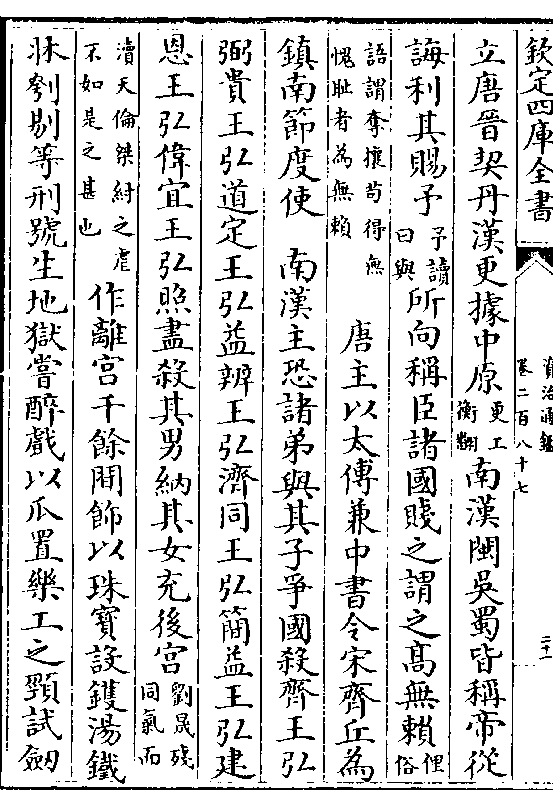 欽定四庫全書
資治通鑑
卷二百八十七
二十一
立唐晉契丹漢更據中原更工衡翻南漢閩吳蜀皆稱帝從
誨利其賜予予讀曰與所向稱臣諸國賤之謂之髙無賴俚俗
語謂奪攘苟得無愧耻者為無賴 唐主以太傅兼中書令宋齊丘為
鎮南節度使 南漢主恐諸弟與其子爭國殺齊王弘
弼貴王弘道定王弘益辨王弘濟同王弘簡益王弘建
恩王弘偉宜王弘照盡殺其男納其女充後宮劉晟殘同氣而
瀆天倫桀紂之虐不如是之甚也作離宮千餘間飾以珠寶設鑊湯鐵
牀刳剔等刑號生地獄嘗醉戲以瓜置樂工之頸試劒